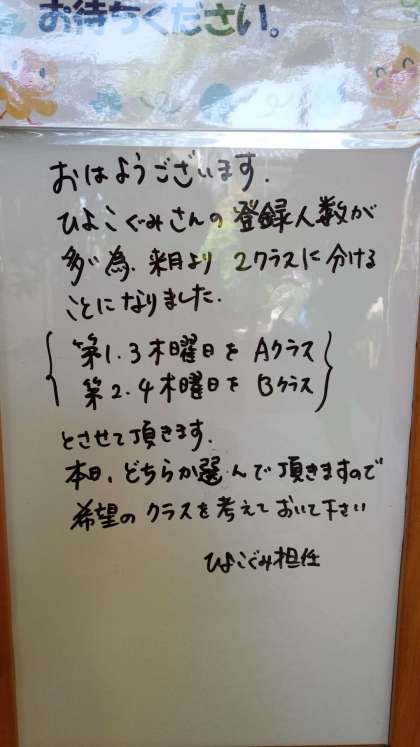 お待ちください。
おはようございます.
ひよこぐみさんの登録人数が
多い為.来月より 2クラスに分ける
ことになりました.
第1.3木曜日を Aクラス
第2.4木曜日を Bクラス
とさせて頂きます.
本日、どちらか選んで頂きますので
希望のクラスを考えておいて下さい
ひよこぐみ担任